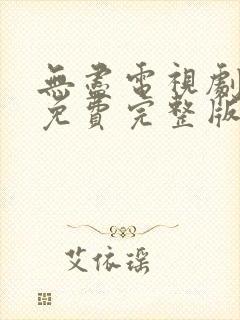 無盡電視劇
免費完整版
艾依瑶